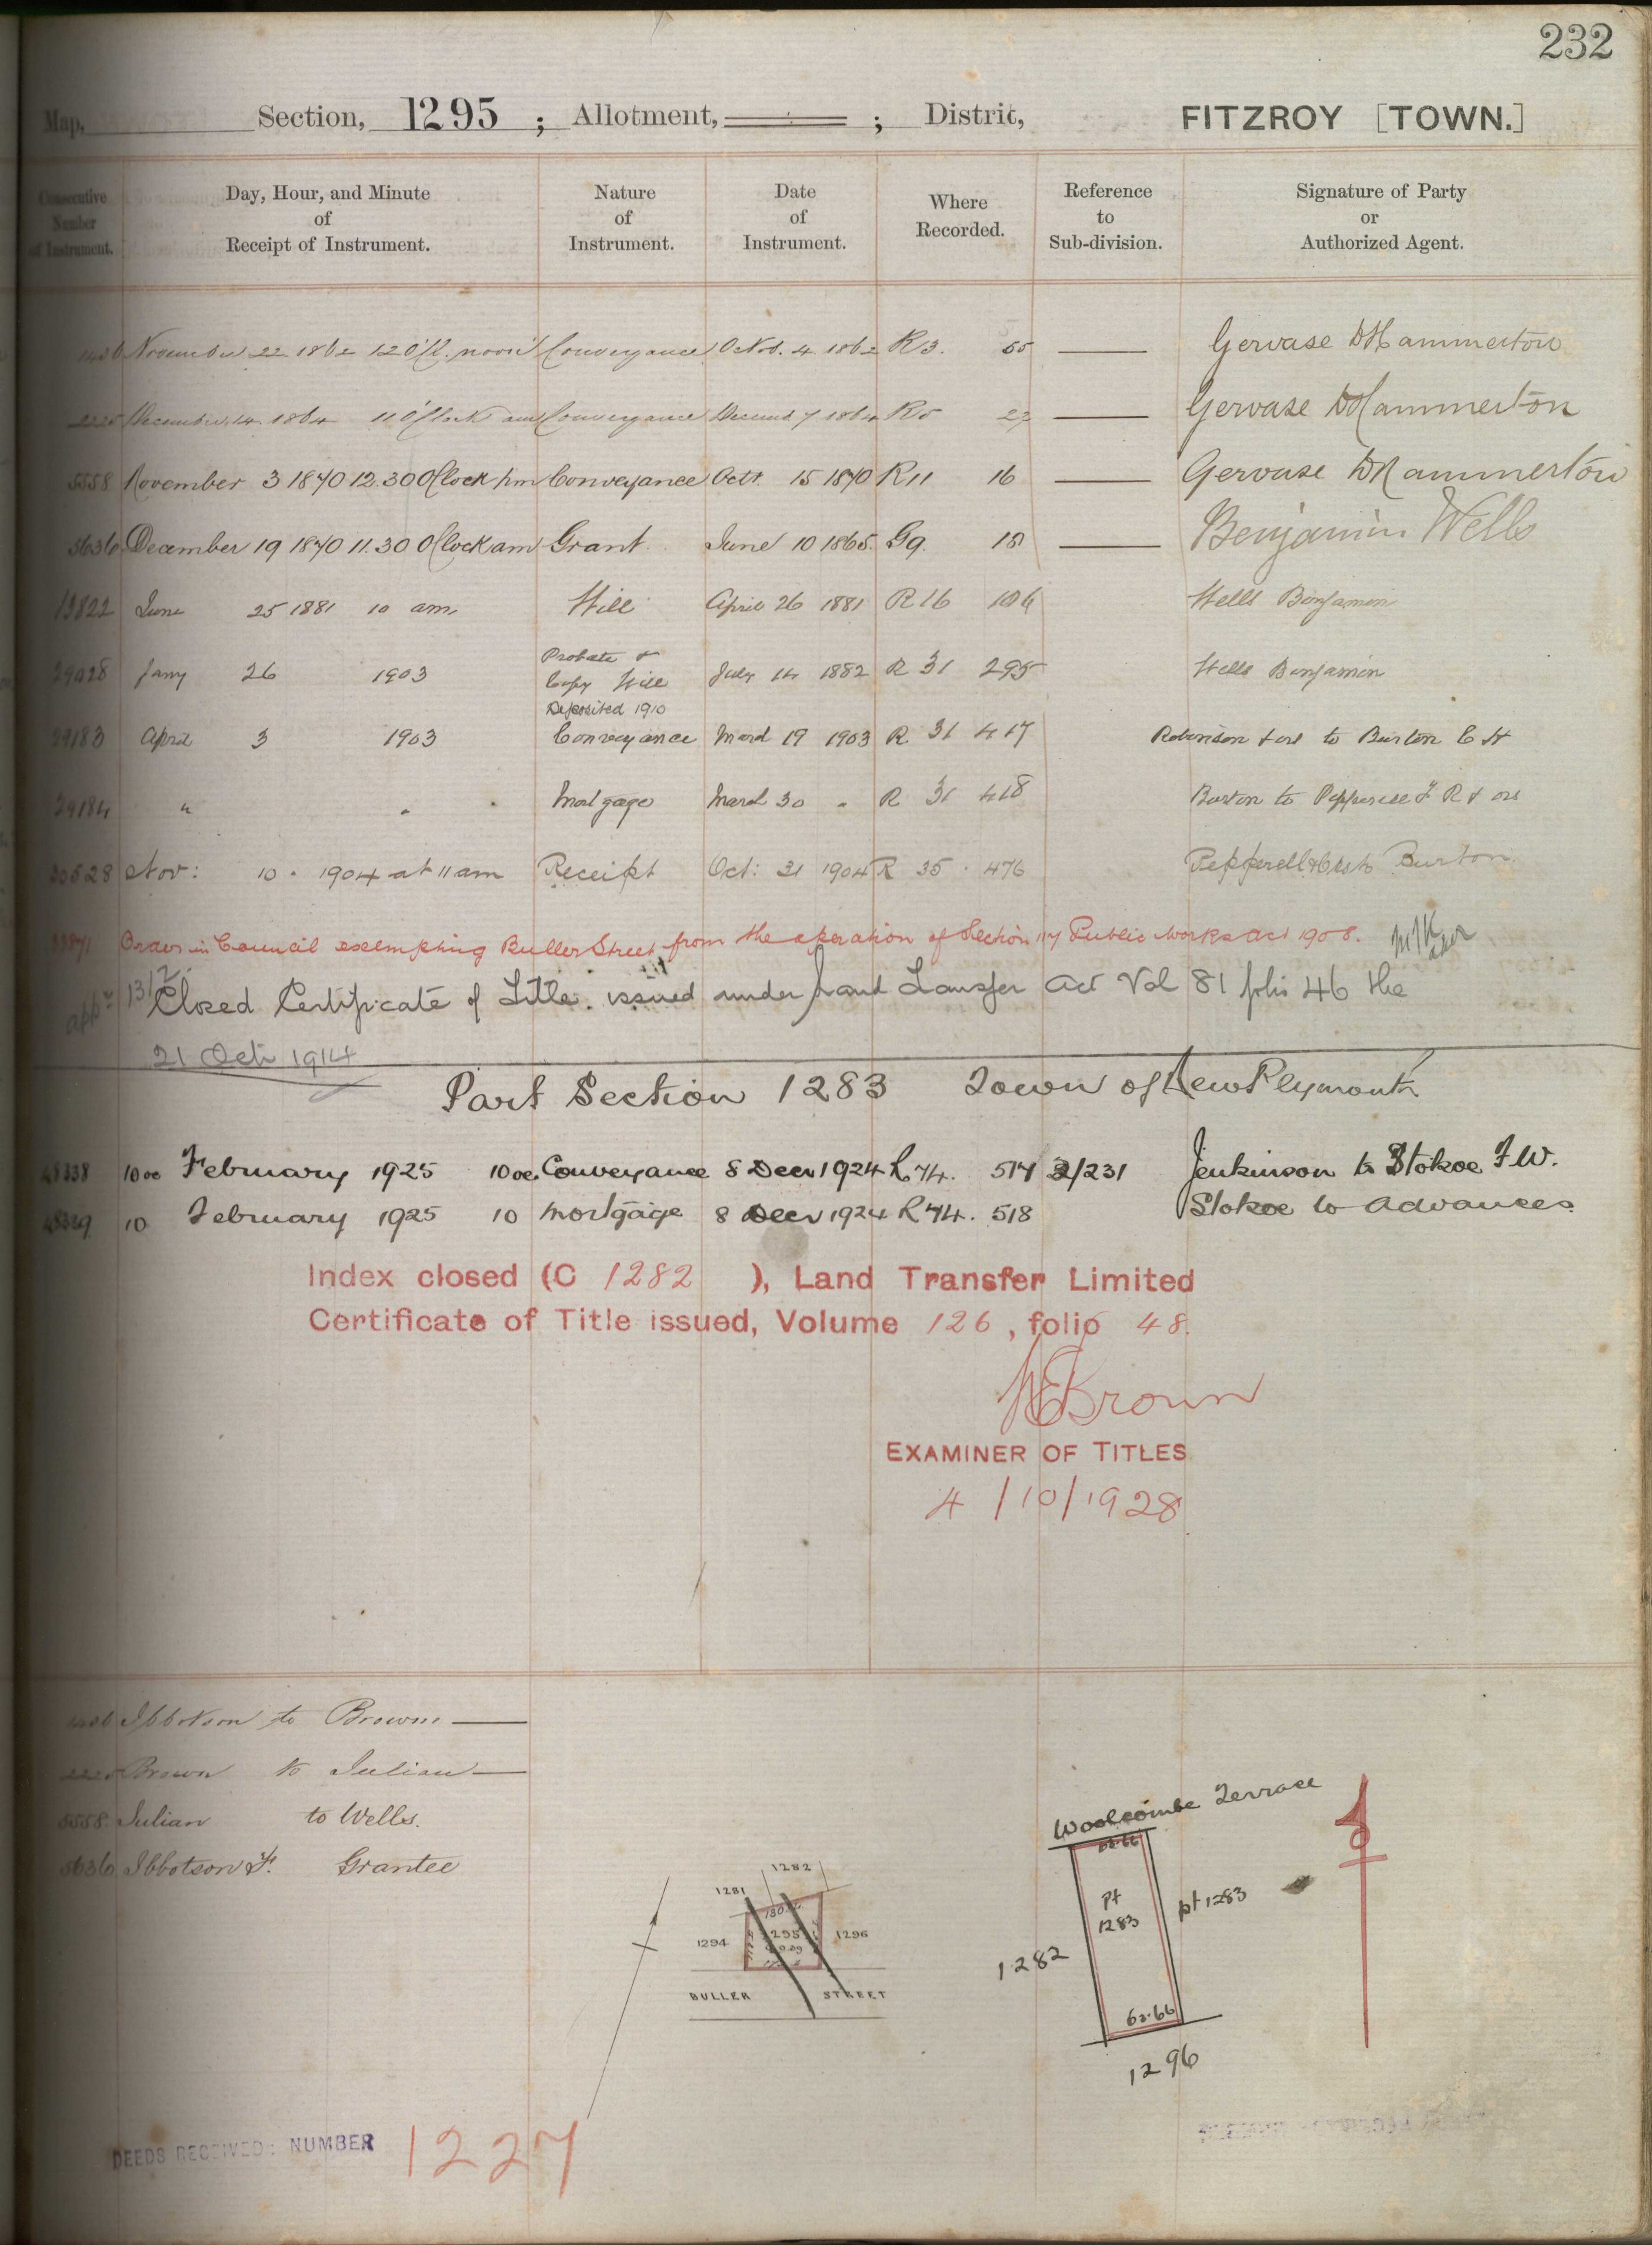 232
Map, Section, 1295 ; Allotment, ; District, FITZROY [TOWN.]
Consecutive Number of Instrument.
Day, Hour, and Minute of Receipt of Instrument.
Nature of Instrument.
Date of Instrument.
Where Recorded.
Reference to Sub-division.
Signature of Party or Authorized Agent.
November 22 1862 12 O'Cl. noon Conveyance Octob. 4 1862 R3. 55 Gervase D Hammerton
2225 December 14 1864 11 O'Clock am Conveyance Decemb 7 1864 R5 Gervase D Hammerton
5558 November 3 1870 12.30 O'Clock pm Conveyance Octr. 15 1870 R11 16 Gervase D Hammerton
5636 December 19 1870 11.30 O'Clock am Grant June 10 1865 G9. Benjamin Wells
13822 June 25 1881 10 am. Will April 26 1881 R 16 Wells Benjamin
29028 Jany 26 1903 Probate & Copy Will Deposited 1910 July 14 1882 R 31 295 Wells Benjamin
29183 April 3 1903 Conveyance March 19 1903 R 31 417 Robinson & ors to Burton C H
29184 " " Mortgage March 30 " R 31 418 Burton to Pepperell F R & ors
30528 Nov: 10 . 1904 at 11 am Receipt Oct: 31 1904 R 35 . 476 Pepperell & ors to Burton
Order in Council exempting Buller Street from the operation of Section 117 Public Works Act 1908.
appn 1312
Closed Certificate of Title issued under Land Transfer Act Vol 81 folio 46 the
21 Oct 1914
Part Section 1283 Town of New Plymouth
48338 10 oc February 1925 10 oc Conveyance 8 Decr 1924 R 74. 517 2/231 Jenkinson to Stokoe F.W.
48339 10 February 1925 10 Mortgage 8 Decr 1924 R 74. 518 Stokoe to Advances
Index closed (C 1282 ), Land Transfer Limited
Certificate of Title issued, Volume 126 , folio 48.
Brown
EXAMINER OF TITLES
4 / 10 / 1928
Ibbotson to Browne
2225 Brown to Julian
5558 Julian to Wells.
5636 Ibbotson F. Grantee
1282
1281
1294
1295
1296
BULLER STREET
Woolcombe Terrace
62.66
pt
1283
pt 1283
1282
62.66
1296
DEEDS RECEIVED: NUMBER 1227